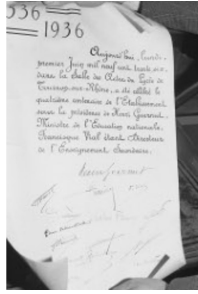 536
1936
Aujourd'hui, lundi
premier Juin mil neuf cent trente six
dans la Salle des Actes du Lycée de
Tournon-sur-Rhône, a été célébré le
quatrième centenaire de l'Etablissement
sous la présidence de Henri Guernut
Ministre de l'Education nationale,
Francisque Vial étant Directeur
de l'Enseignement Secondaire.